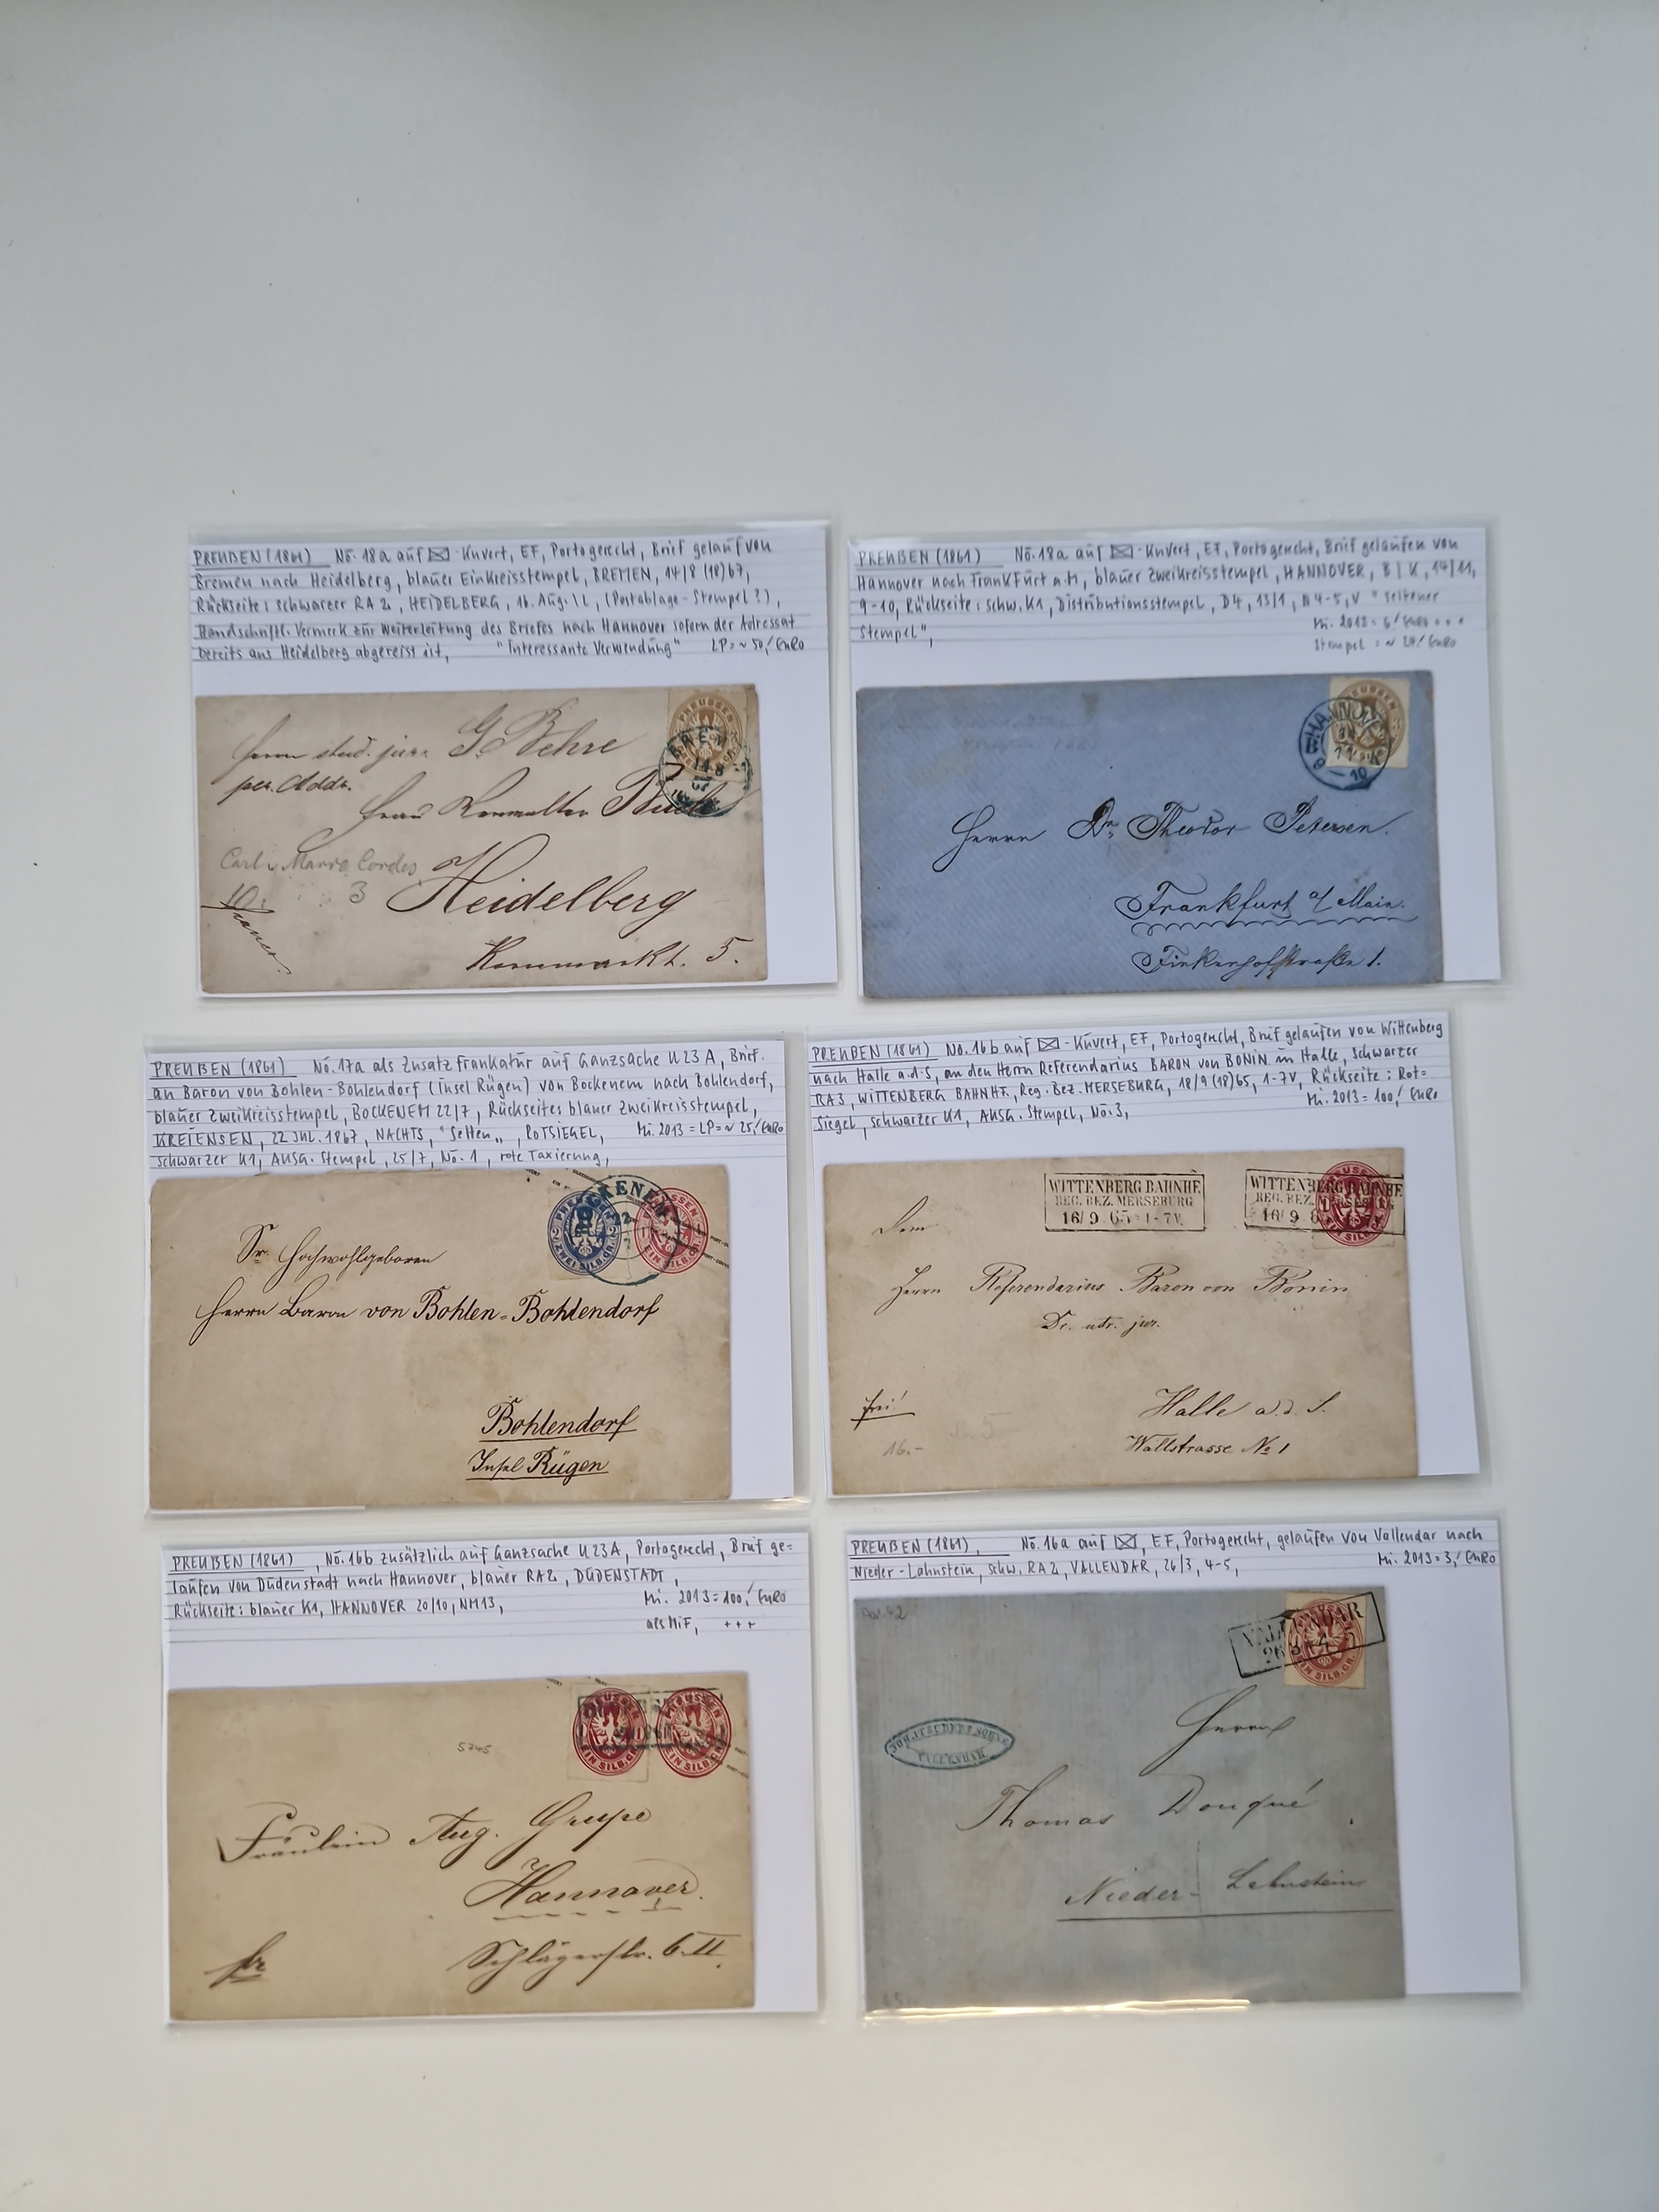 PREUßEN (1861) No. 18a auf ✉-Kuvert, EF, Portogerecht, Brief gelauf von
Bremen nach Heidelberg, blauer Einkreisstempel, BREMEN, 14/8 (18)67,
Rückseite: schwarzer RA2, HEIDELBERG, 16. Aug. \ L, (Postablage-Stempel?),
Handschriftl. Vermerk zur Weiterleitung des Briefes nach Hannover sofern der Adressat
bereits aus Heidelberg abgereist ist, "Interessante Verwendung" LP=~50,/ EURO
PREUSSEN
BREMEN
14 8
67
Herrn stud. jur. G. Behre
per. Addr.
Frau
Carl Cordes
10. 3
Heidelberg
Kornmarkt. 5.
PREUßEN (1861) No. 18a auf ✉-Kuvert, EF, Portogerecht, Brief gelaufen von
Hannover nach Frankfurt a.M, blauer Zweikreisstempel, HANNOVER, B | K, 14/11,
9-10, Rückseite: schw. K1, Distributionsstempel, D4, 15/1, N 4-5, V "seltener
Stempel", Mi. 2013 = 6,/ EURO + + +
Stempel = ~ 20,/ EURO
PREUSSEN
HANNOVER
9-10
Herrn Dr. Theodor Petersen.
Frankfurt a/Main.
Finkenhofstraße 1.
PREUßEN (1861) No. 17a als Zusatzfrankatur auf Ganzsache U23A, Brief.
an Baron von Bohlen-Bohlendorf (Insel Rügen) von Bockenem nach Bohlendorf,
blauer Zweikreisstempel, BOCKENEM 22/7, Rückseite: blauer Zweikreisstempel,
KREIENSEN, 22 JUL. 1867, NACHTS, "Selten", ROTSIEGEL, Mi. 2013 = LP=~25,/ EURO
schwarzer K1, AUSG. Stempel, 25/7, No. 1, rote Taxierung,
BOCKENEM
22
ZWEI SILB.GR.
EIN SILB.GR.
Sr. Hochwohlgeboren
Herrn Baron von Bohlen-Bohlendorf
Bohlendorf
Insel Rügen
PREUßEN (1861) No. 16b auf ✉-Kuvert, EF, Portogerecht, Brief gelaufen von Wittenberg
nach Halle a.d.S, an den Herrn Referendarius BARON von BONIN in Halle, schwarzer
RA3, WITTENBERG BAHNHF., Reg. Bez. MERSEBURG, 18/9 (18)65, 1-7V, Rückseite: Rot=
Siegel, schwarzer K1, AUSG. Stempel, No. 3, Mi. 2013 = 100,/ EURO
WITTENBERG BAHNHF. WITTENBERG BAHNHF.
REG. BEZ. MERSEBURG REG. BEZ. MERSEBURG
16/9 65 1-7V. 16/9 6
Dem
Herrn Referendarius Baron von Bonin
Dr. utr. jur.
frei!
16.-
Halle a.d. S.
Wallstrasse No 1
PREUßEN (1861), No. 16b zusätzlich auf Ganzsache U23A, Portogerecht, Brief ge=
laufen von Dudenstadt nach Hannover, blauer RA2, DUDENSTADT,
Rückseite: blauer K1, HANNOVER 20/10, NM13, Mi. 2013 = 100,/ EURO
als MiF, +++
EIN SILB.GR.
EIN SILB.GR.
5745
Fräulein Aug. Grupe
Hannover.
Schlägerstr. 6 II.
fr
PREUßEN (1861), No. 16a auf ✉, EF, Portogerecht, gelaufen von Vallendar nach
Nieder-Lahnstein, schw. RA2, VALLENDAR, 26/3, 4-5, Mi. 2013 = 3,/ EURO
VALLENDAR
26 3 4-5
EIN SILB.GR.
VALLENDAR
Herrn
Thomas Douqué
Nieder-Lahnstein